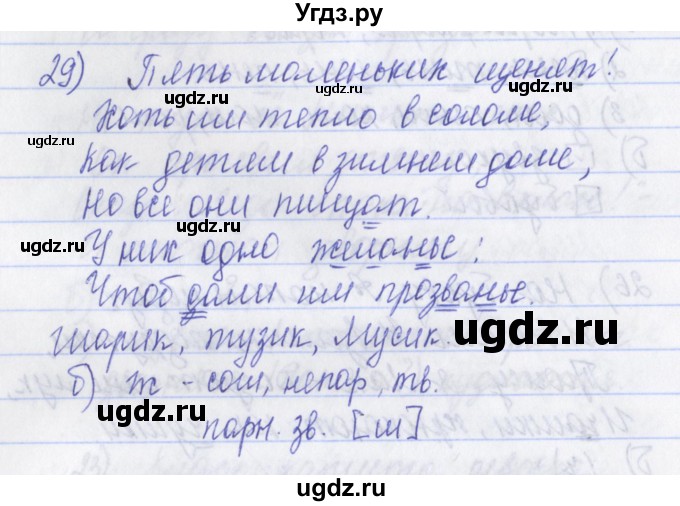 Угдз.ру
29) Пять маленьких щенят!
Хоть им тепло в соломе,
Как детям в зимнем доме,
Но все они пищат.
У них одно желанье:
Чтоб дали им прозванье.
Шарик, тузик, Мусик.
б) ж - сог, непар, тв.
парн. зв. [ш]
ugdz.ru
ugdz.ru
ugdz.ru
ugdz.ru
ugdz.ru
ugdz.ru
ugdz.ru
ugdz.ru
ugdz.ru
ugdz.ru
ugdz.ru